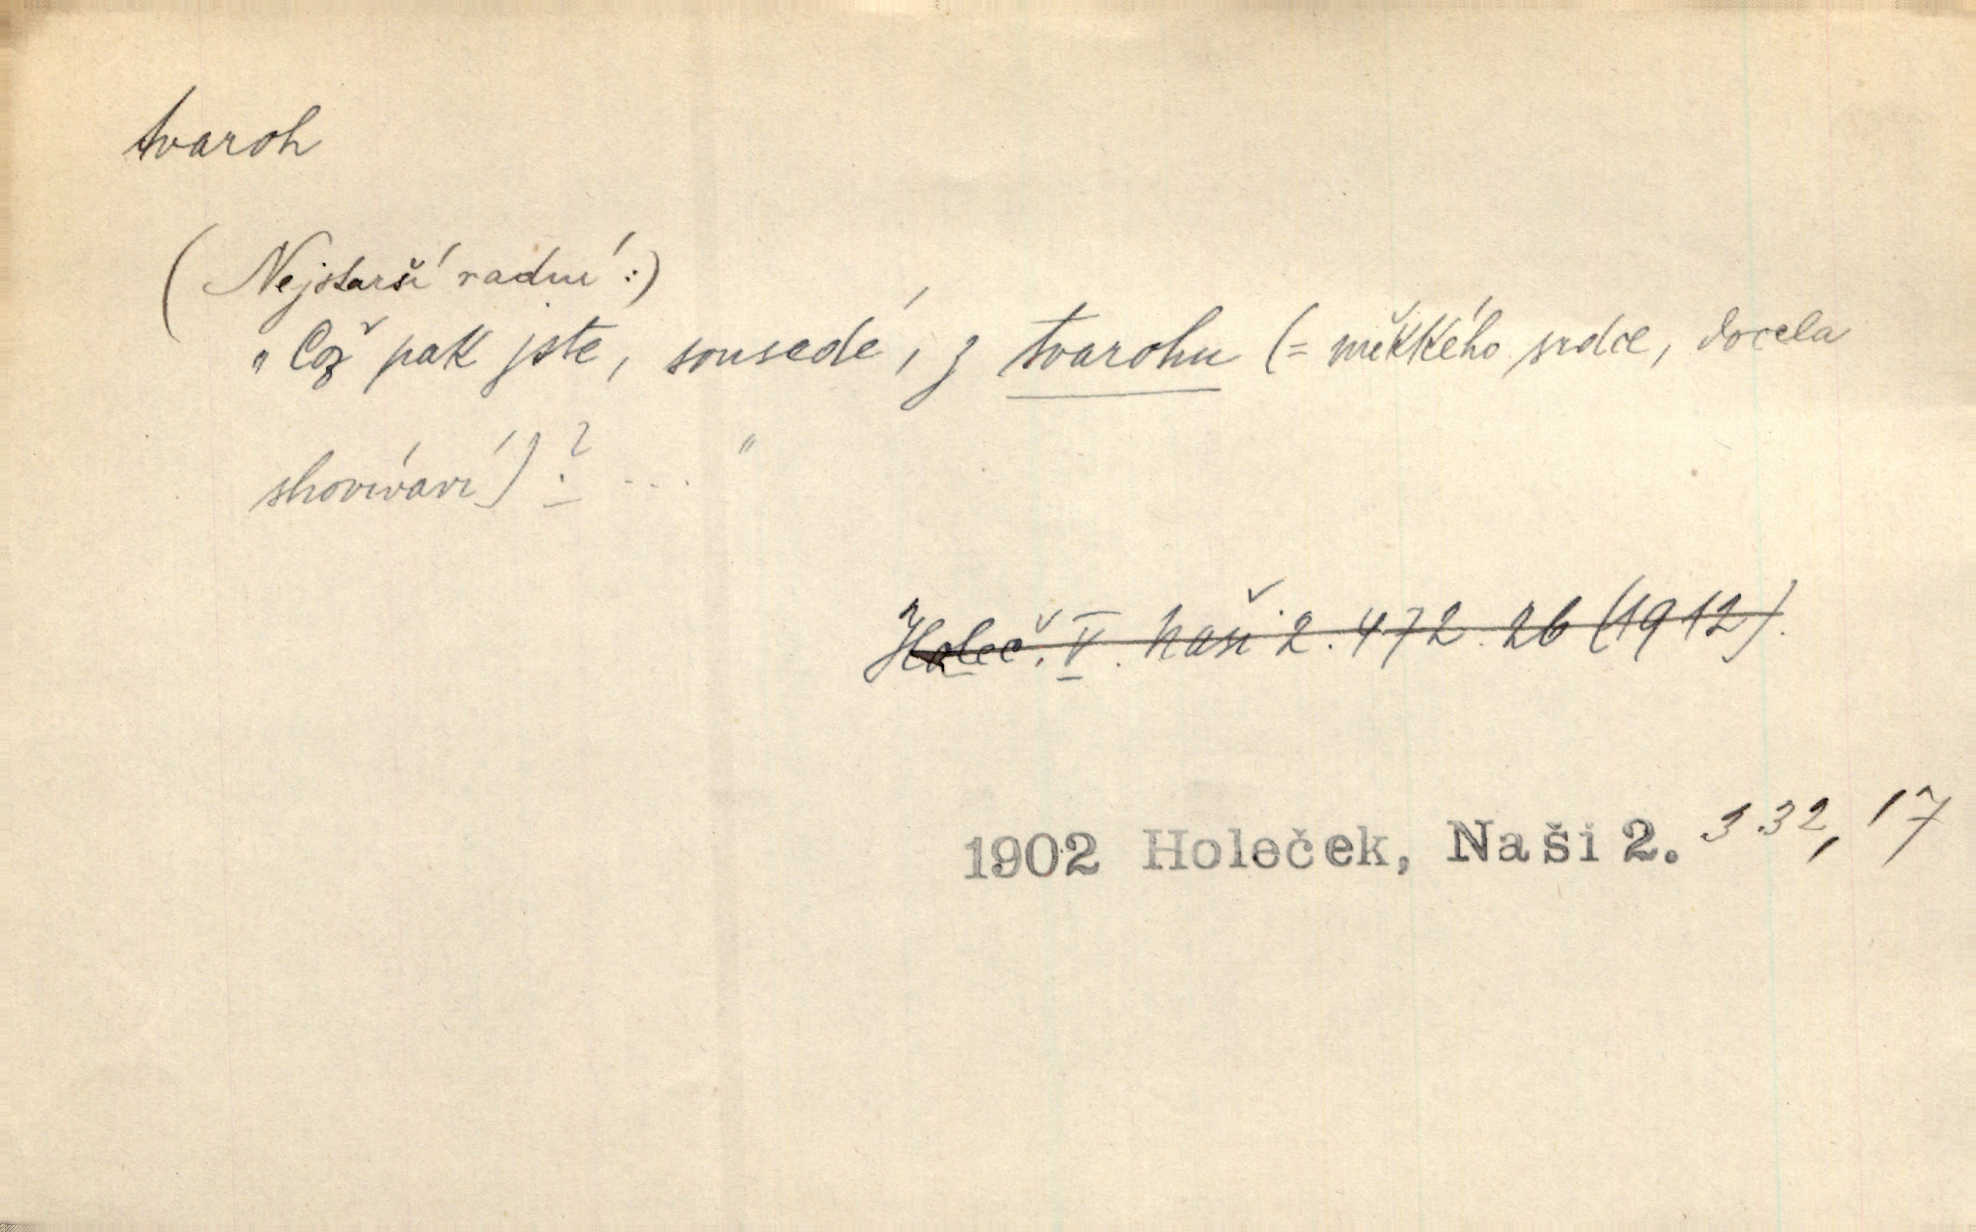 tvaroh
(Nejstarší radní:)
„Což pak jste, sousedé, z tvarohu (= měkkého srdce, docela
shovívaví)? ... "
Holeč. V. Naši 2. 472. 26 (1912).
1902 Holeček, Naši 2. 332, 17